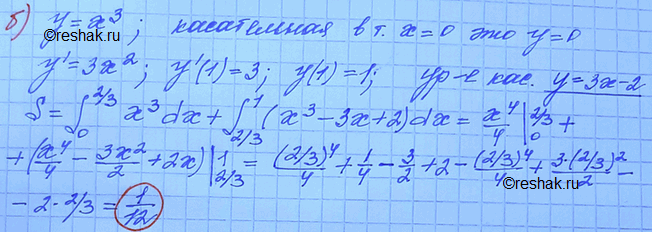 б) y = x³; касательная в т. x=0 это y=0
©reshak.ru
y' = 3x²; y'(1) = 3; y(1) = 1; ур-е кас. y = 3x-2
S = ∫₀^{2/3} x³ dx + ∫_{2/3}^1 (x³ - 3x + 2) dx = x⁴/4 |₀^{2/3} +
+ (x⁴/4 - 3x²/2 + 2x) |_{2/3}^1 = (2/3)⁴/4 + 1/4 - 3/2 + 2 - (2/3)⁴/4 + 3·(2/3)²/2 -
- 2·2/3 = 1/12
©reshak.ru